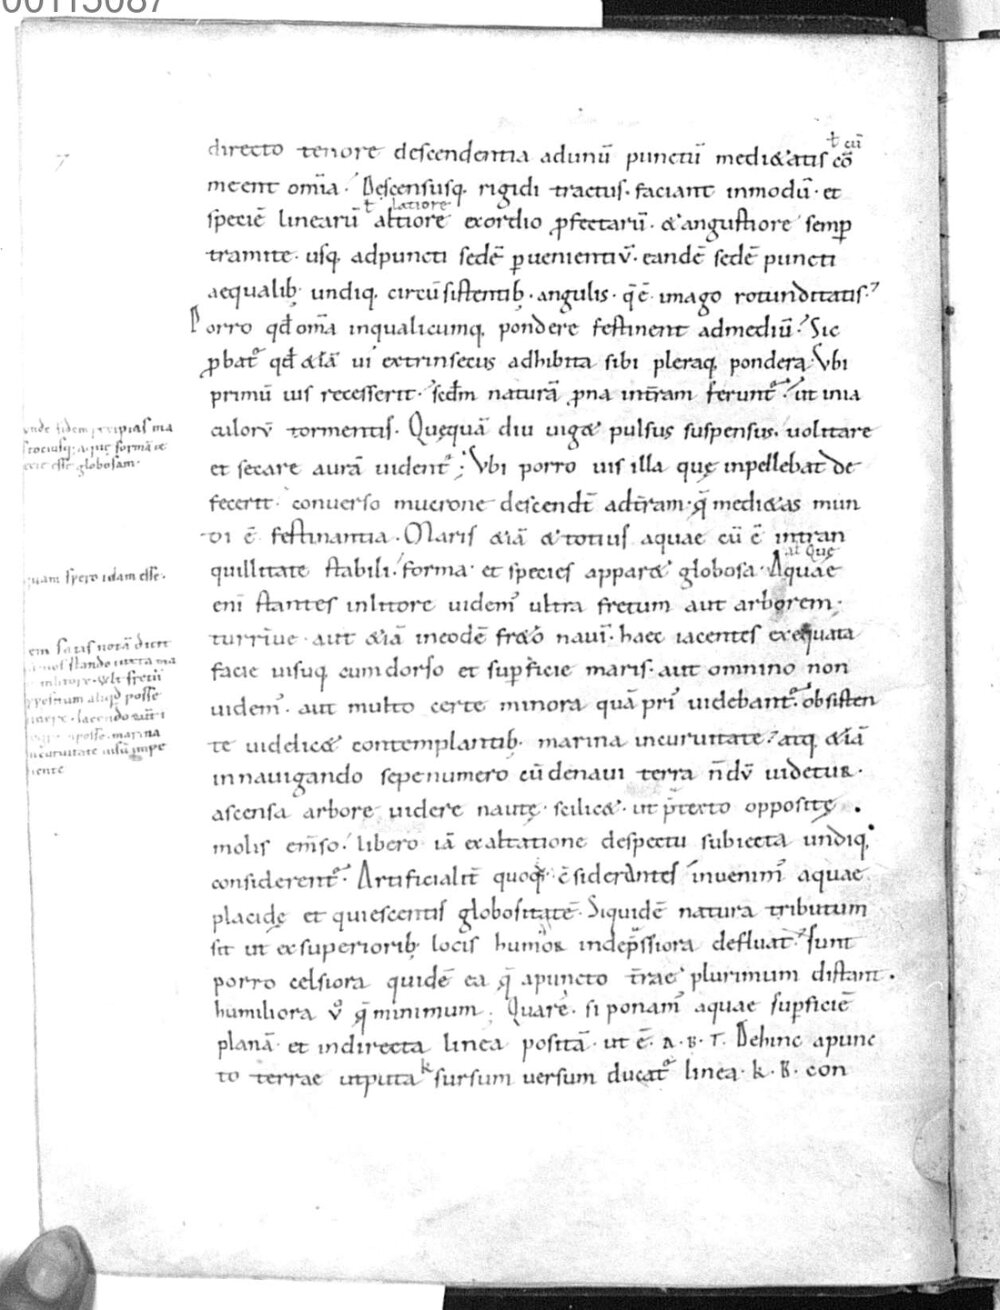 00115087
7
directo tenore descendentia adunū punctū medi&atis cō
ł cū
meent om̄ia. Descensusq. rigidi tractus. faciant inmodū. et
speciē linearū altiore exordio ꝓfectarū. & angustiore semꝑ
ł latiore
tramite. usq. adpuncti sedē ꝑuenientiū. eandē sedē puncti
aequalib; undiq. circūsistentib;. angulis. q̄ ē imago rotunditatis.
Porro qđ om̄a inqualicumq. pondere festinent admediū. Sic
ꝓbat᷒ qđ &iā ui extrinsecus adhibita sibi pleraq. pondera. Ubi
primū uis recesserit. scđm naturā ꝓna int̄ram ferunt᷒. ut inia
culorū tormentis. Quęquā diu uig& pulsus suspensus. uolitare
et secare aurā uident᷒; Ubi porro uis illa quę inpellebat de
fecerit. conuerso mucrone descendt̄ adt̄ram. q̄ medi&as mun
di ē festinantia. Maris &iā & totius aquae cū ē intran
quillitate stabili. forma. et species appar& globosa. Aquae
at Quę
eni stantes inlitore uidem᷒ ultra fretum aut arborem.
turrīue. aut &iā ineodē fr&o nauī. haec iacentes exequata
facie uisuq. cumdorso et suꝑficie maris. aut omnino non
uidem᷒. aut multo certe minora quā pri᷒ uidebant᷒. obsisten
te uidelic& contemplantib;. marina incuruitate. atq. &iā
innauigando sepenumero cū denaui terra n̄dū uidetur.
ascensa arbore uidere nautę. scilic&. ut p̄texto oppositę.
molis em̄so. libero iā exaltatione despectu subiecta undiq.
considerent᷒. Artificialit̄ quoq. c̄siderantes inuenim᷒ aquae
placidę et quiescentis globositatē. Siquidē natura tributum
sit ut exsuperiorib; locis humor indep̄ssiora defluat. sunt
porro celsiora quidē ea q̄ apuncto t̄rae plurimum distant.
humiliora ū q̄ minimum. Quare. si ponam᷒ aquae suꝑficiē
planā. et indirecta linea positā. ut ē. A. B. Γ. Dehinc apunc
to terrae utputa k sursum uersum ducat᷒ linea. k. B. con
unde fidem p̄cipias ma
formā
esse globosam.
quam spero idam esse.
satis notā
stando iuxta ma
litore. uelt fretū
aliqd posse
iacendo
posse. marina
incuruitate uisū impe
diente